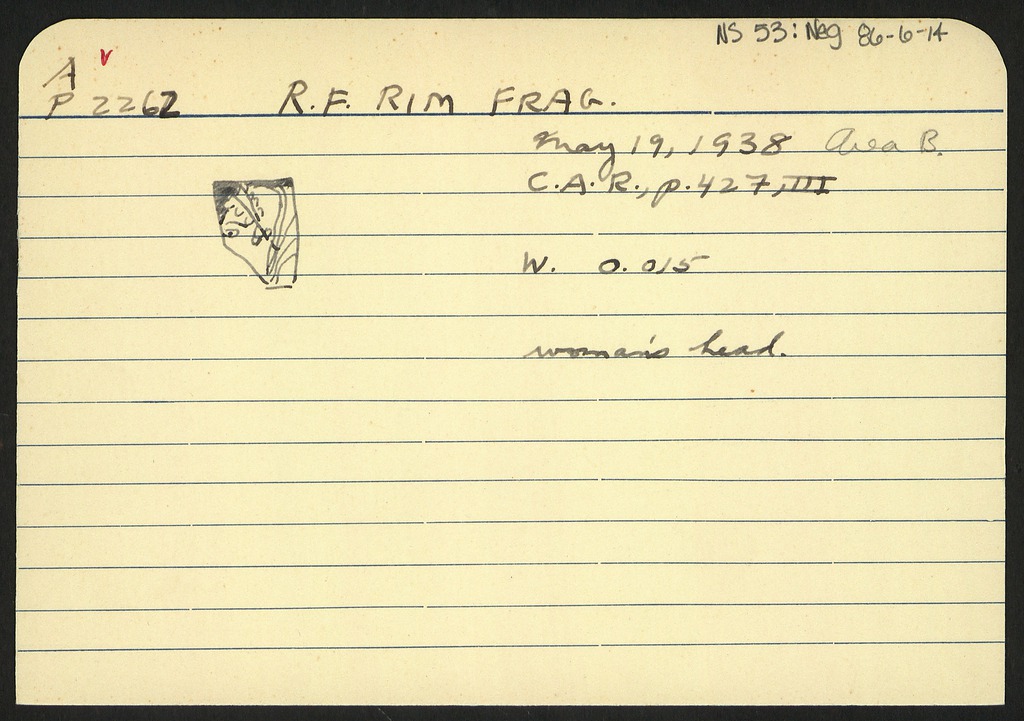 NS 53: Neg 86-6-14
A v
P 2262 R.F. RIM FRAG.
May 19, 1938 Area B.
C.A.R., p. 427, III
W. 0.015
woman's head.